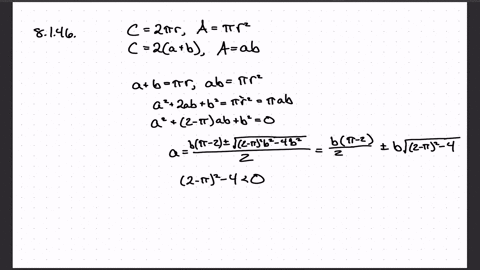 8.1.46.
C = 2πr, A = πr²
C = 2(a+b), A = ab
a+b = πr, ab = πr²
a² + 2ab + b² = π²r² = πab
a² + (2-π)ab + b² = 0
a = (b(π-2) ± √((2-π)²b² - 4b²))/2 = b(π-2)/2 ± b√((2-π)² - 4)
(2-π)² - 4 < 0